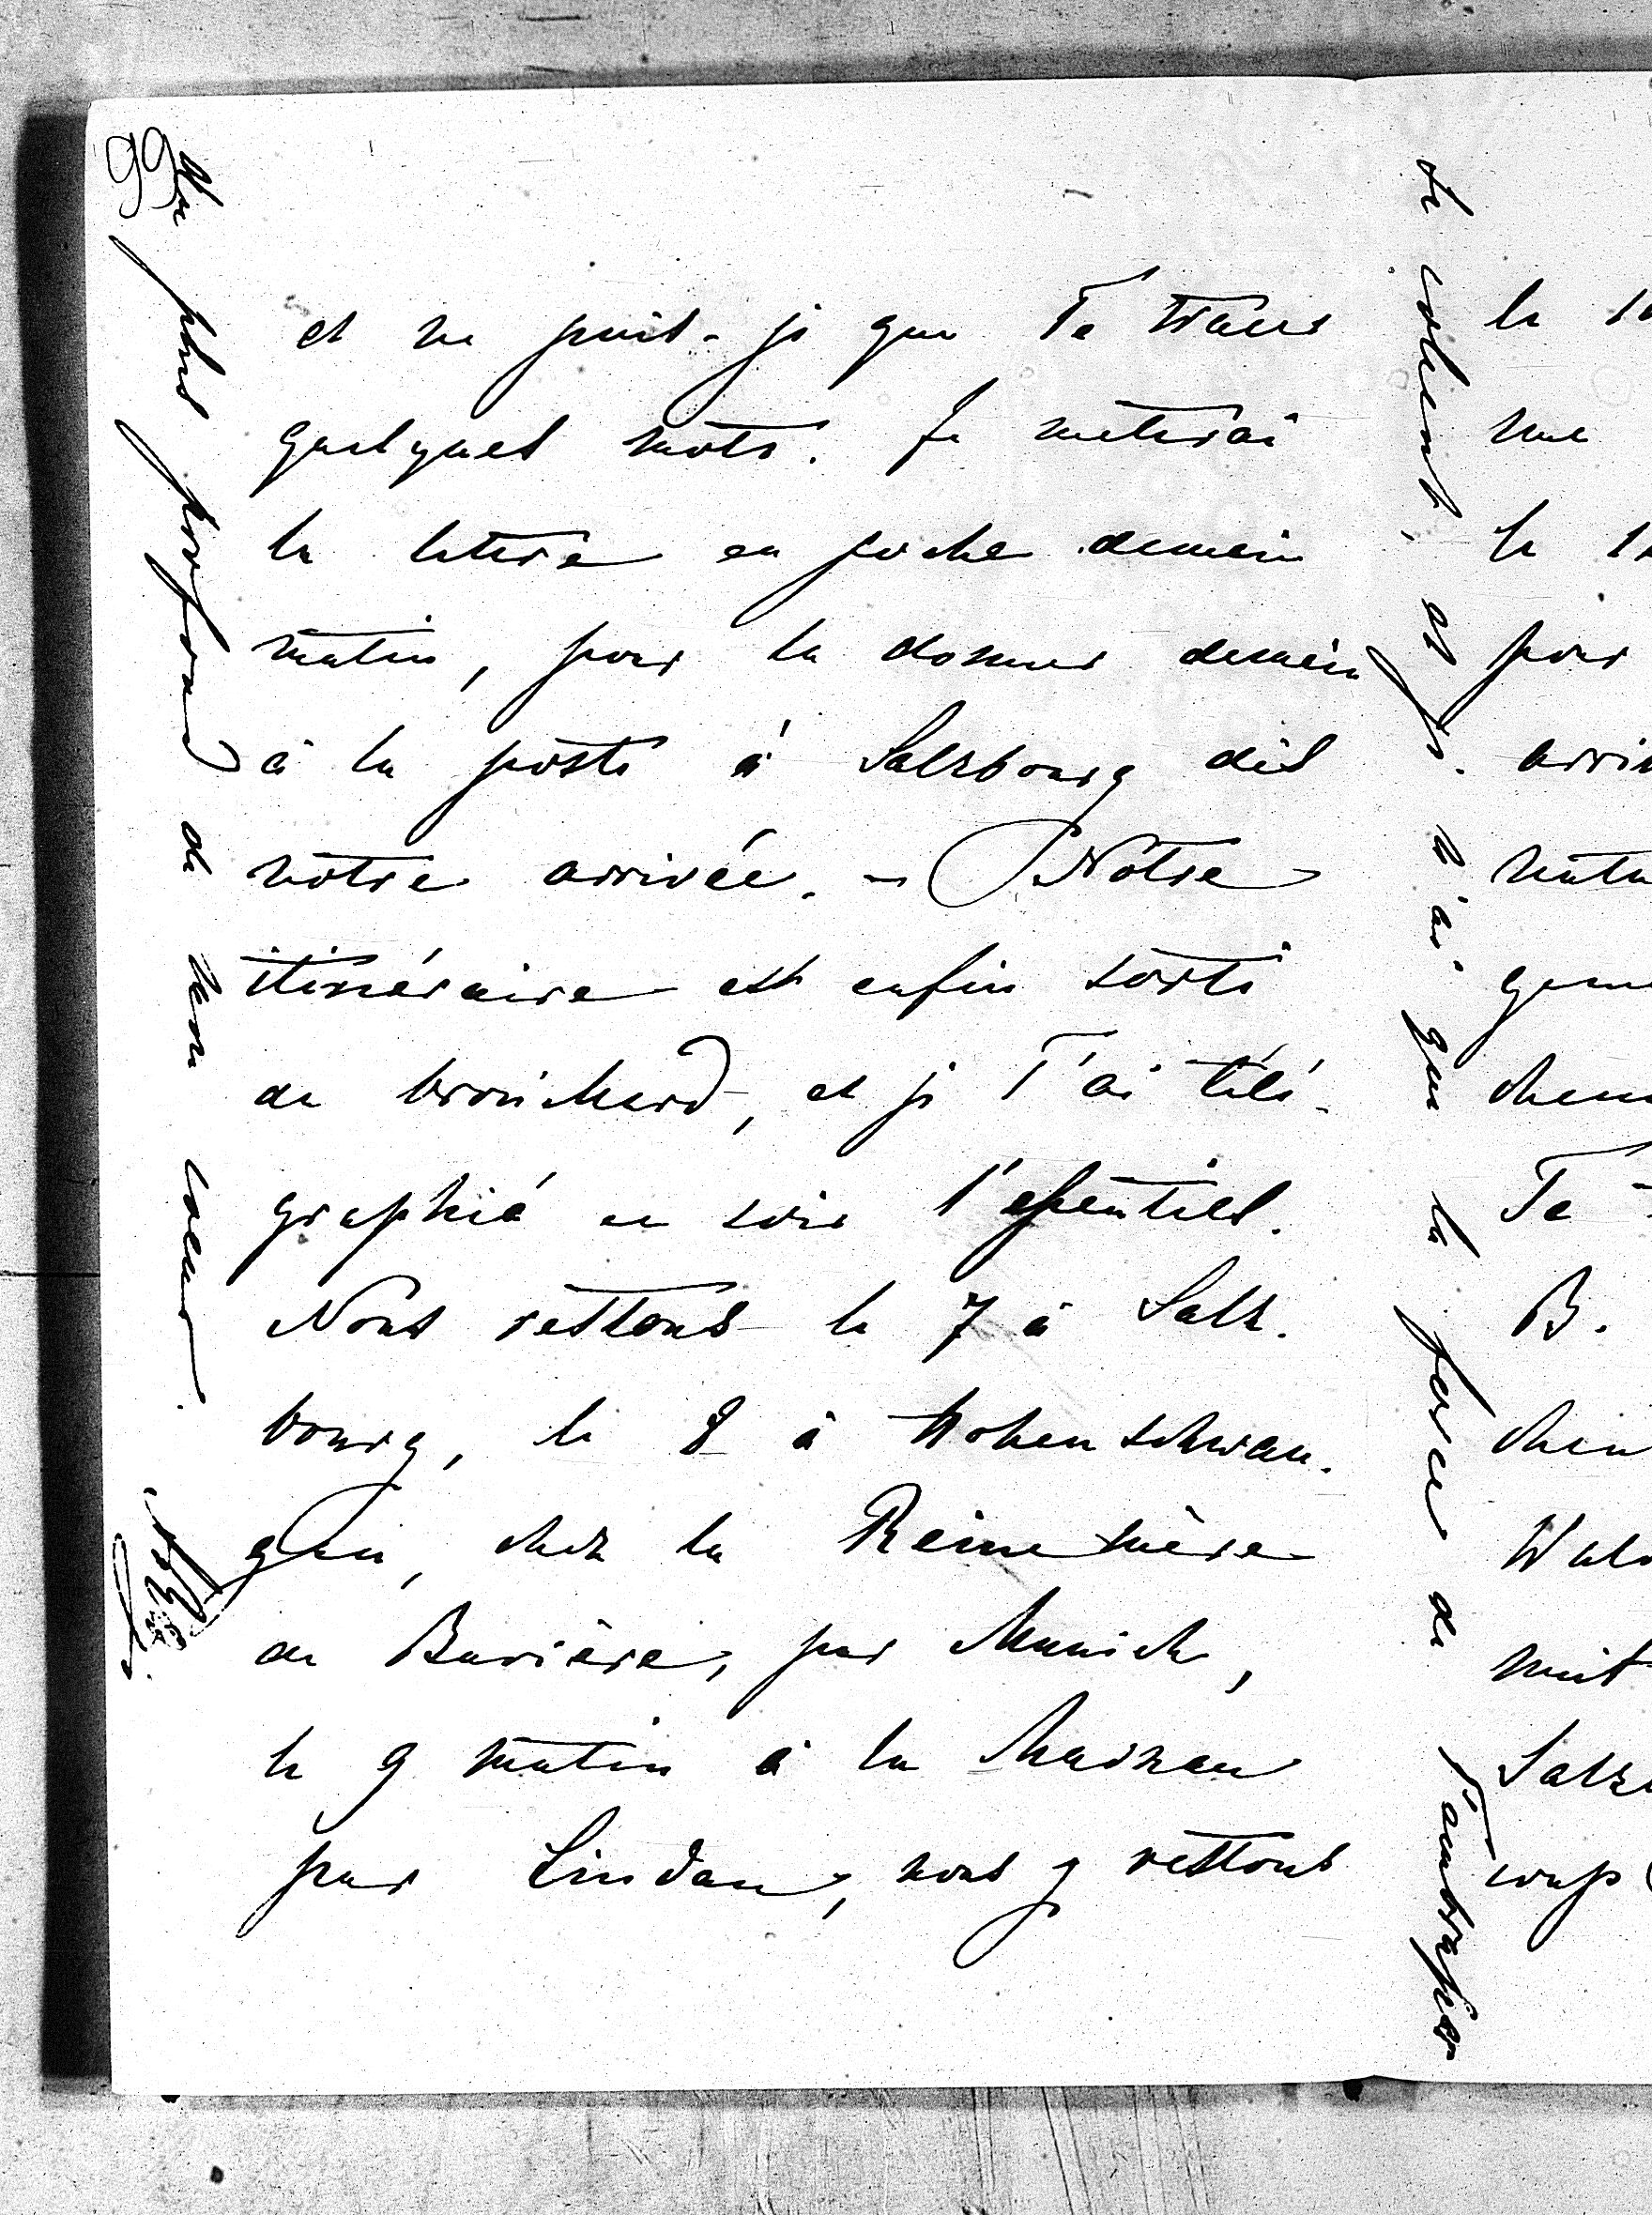 et ne puis-je que Te tracer
quelques mots. Je metterai
la lettre en poche demain
matin, pour la donner demain
à la poste à Salzbourg dès
notre arrivée. - Notre
itinéraire est enfin sorti
du brouillard, et je T'ai télé-
graphié ce soir l'essentiel.
Nous restons le 7 à Salz-
bourg, le 8 à Hohenschwan-
gau, chez la Reine mère
de Bavière, par Munich,
le 9 matin à la Mainau
par Lindau, nous y restons
99
plus profond de mon coeur.
se collent, et je n'ai que la force de T'embrasser
le
pour
Te
B.